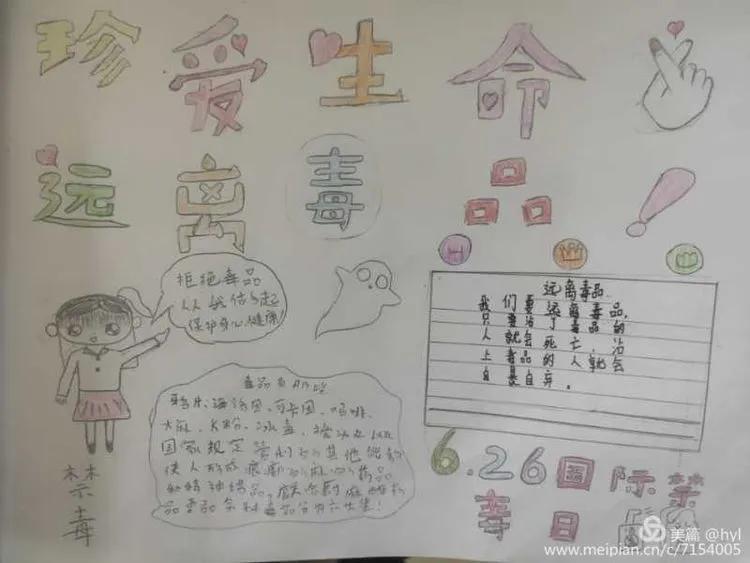 珍爱生命
远离毒品!
拒绝毒品
人人
保护身心健康!
远离毒品
我们要远离毒品,
只要沾了毒品的
人就会死亡,沾
上毒品的人就会
自暴自弃。
毒品有哪些
鸦片、海洛因、可卡因、吗啡、
大麻、K粉、冰毒、
国家规定管制的其他能够
使人形成瘾癖的麻 药品
和精神
品
禁毒
6.26国际禁
毒日
美篇 @hyl
www.meipian.cn/c/7154005